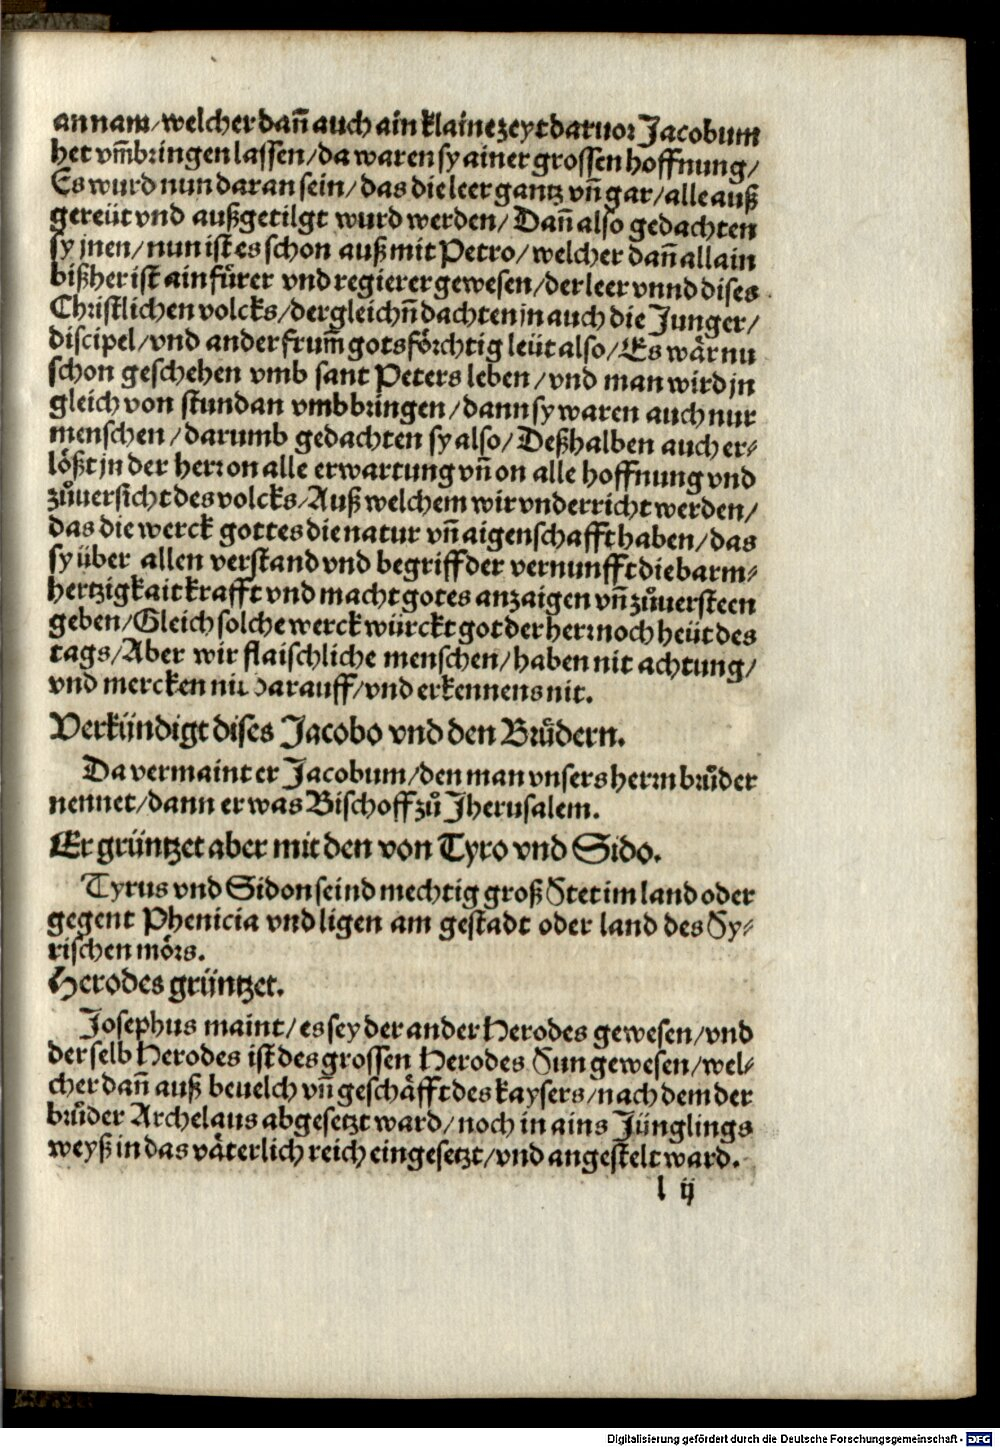 annam/welcher dañ auch ain klaine zeyt daruor Jacobum
het vm̃bringen lassen/da waren sy ainer grossen hoffnung/
Es wurd nun daran sein/das die leer gantz vñ gar/alle auß
gereüt vnd außgetilgt wurd werden/Dañ also gedachten
sy jnen/nun ist es schon auß mit Petro/welcher dañ allain
bißher ist ain fürer vnd regierer gewesen/der leer vnnd dises
Christlichen volcks/dergleichñ dachten jn auch die Junger/
discipel/vnd ander frum̃ gotsförchtig leüt also/Es wär nu
schon geschehen vmb sant Peters leben/vnd man wird jn
gleich von stundan vmbbringen/dann sy waren auch nur
menschen/darumb gedachten sy also/Deßhalben auch er⸗
lößt jn der herr on alle erwartung vñ on alle hoffnung vnd
zůuersicht des volcks/Auß welchem wir vnderricht werden/
das die werck gottes die natur vñ aigenschafft haben/das
sy über allen verstand vnd begriff der vernunfft die barm⸗
hertzigkait krafft vnd macht gotes anzaigen vñ zůuersteen
geben/Gleich solche werck würckt got der herr noch heüt des
tags/Aber wir flaischliche menschen/haben nit achtung/
vnd mercken nit darauff/vnd erkennens nit.
Verkündigt dises Jacobo vnd den Brůdern.
Da vermaint er Jacobum/den man vnsers herrn brůder
nennet/dann er was Bischoff zů Jherusalem.
Er grüntzet aber mit den von Tyro vnd Sido.
Tyrus vnd Sidon seind mechtig groß Stet im land oder
gegent Phenicia vnd ligen am gestadt oder land des Sy⸗
rischen mörs.
Herodes grüntzet.
Josephus maint/es sey der ander Herodes gewesen/vnd
der selb Herodes ist des grossen Herodes Sun gewesen/wel⸗
cher dañ auß beuelch vñ geschäfft des kaysers/nach dem der
brůder Archelaus abgesetzt ward/noch in ains Jünglings
weyß in das väterlich reich eingesetzt/vnd angestelt ward.
l ij
Digitalisierung gefördert durch die Deutsche Forschungsgemeinschaft - DFG